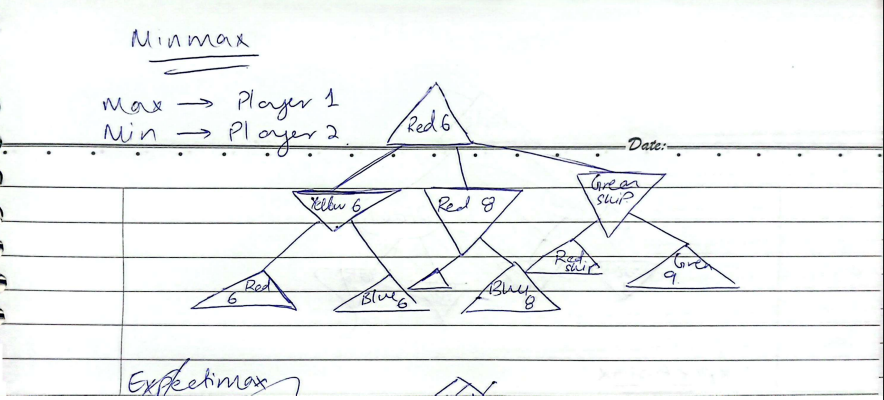 Minmax
Max → Player 1
Min → Player 2.
Red 6
Date:
Yellow 6
Red 8
Green
skip
6 Red
Blue 6
Blue 8
Red
skip
Green
9
Expectimax